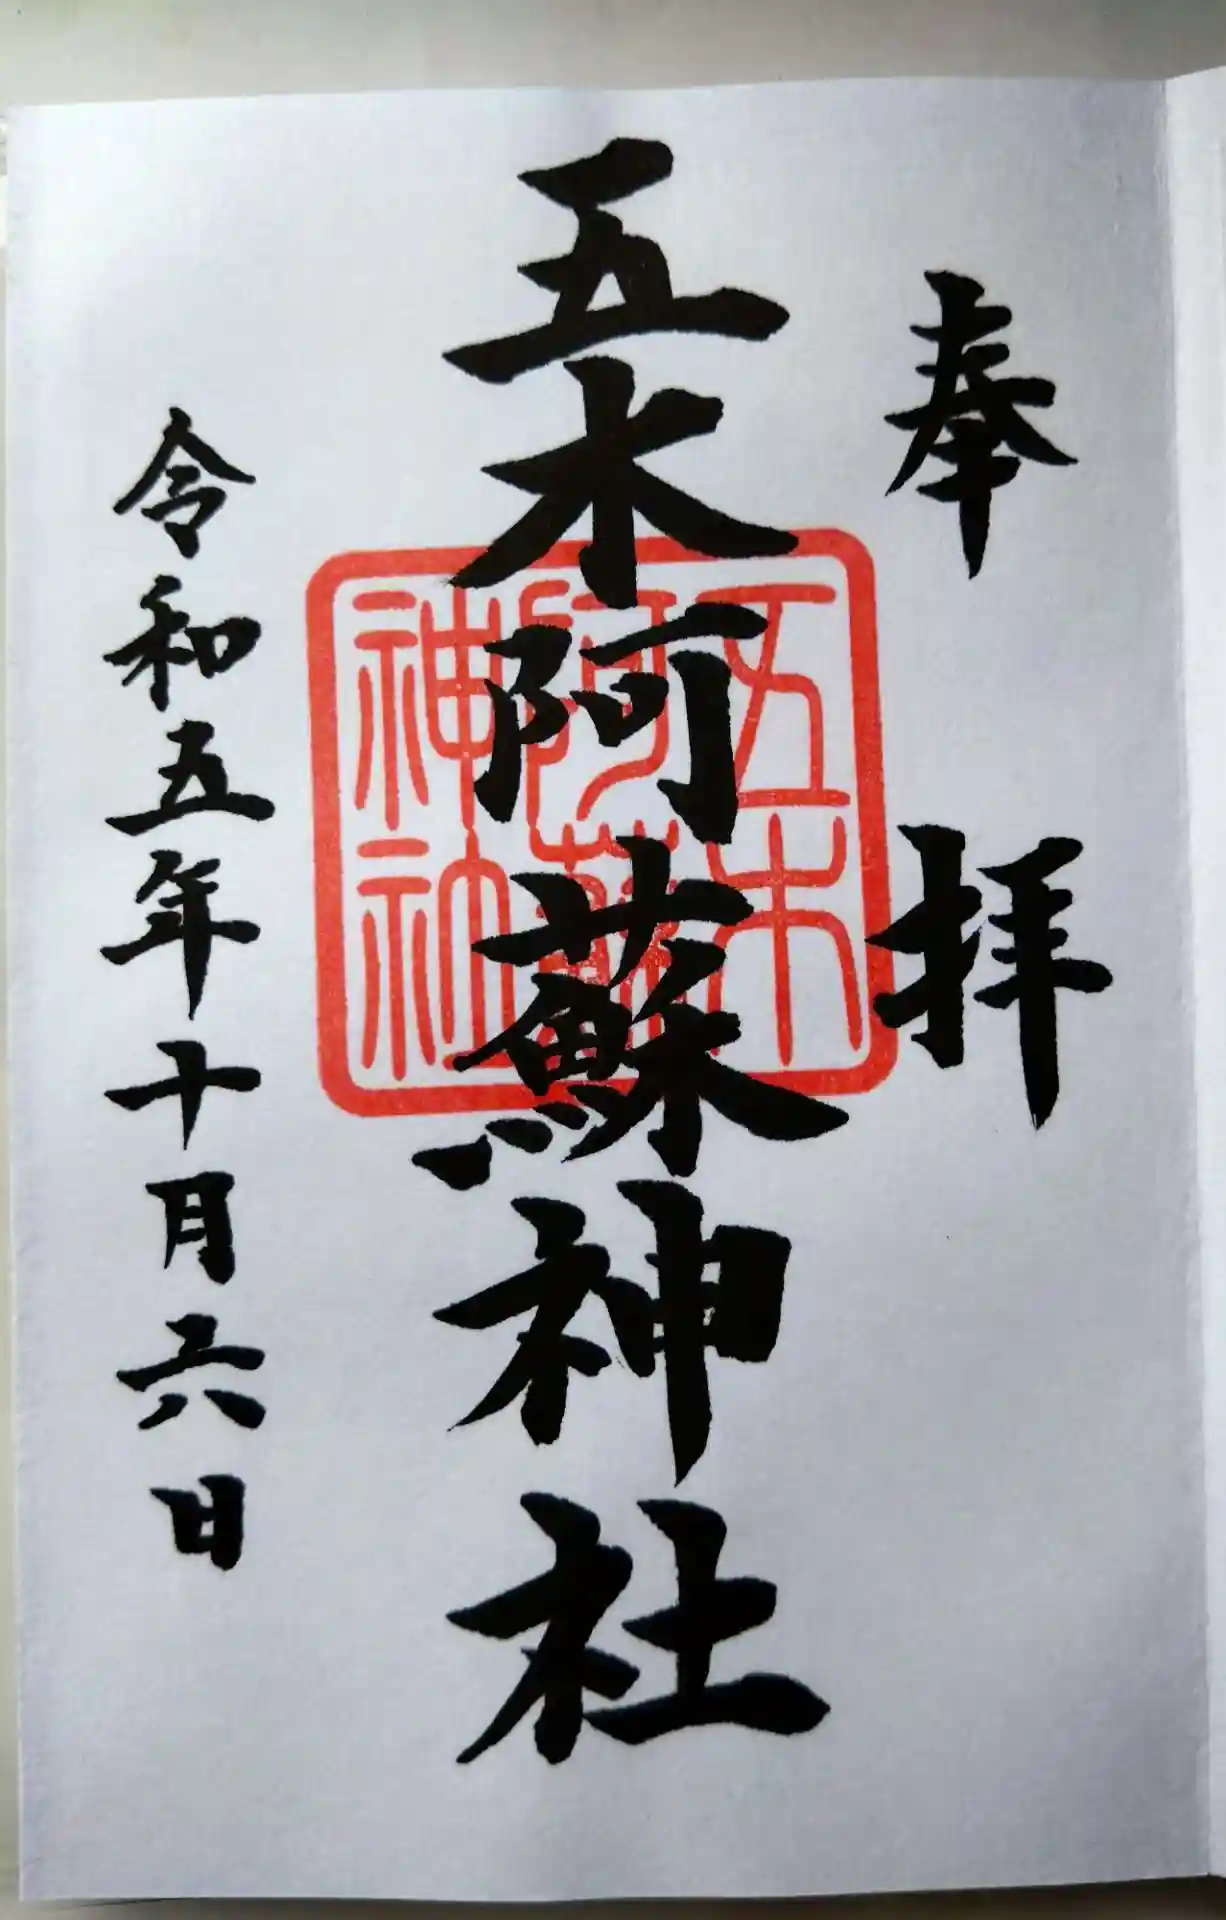 奉拝
五木阿蘇神社
五木
阿蘇
神社
令和五年十月六日